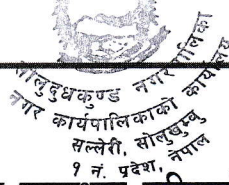 सोलुदुधकुण्ड नगरपालिका
नगर कार्यपालिकाको कार्यालय
सल्लेरी, सोलुखुम्बु
१ नं. प्रदेश, नेपाल